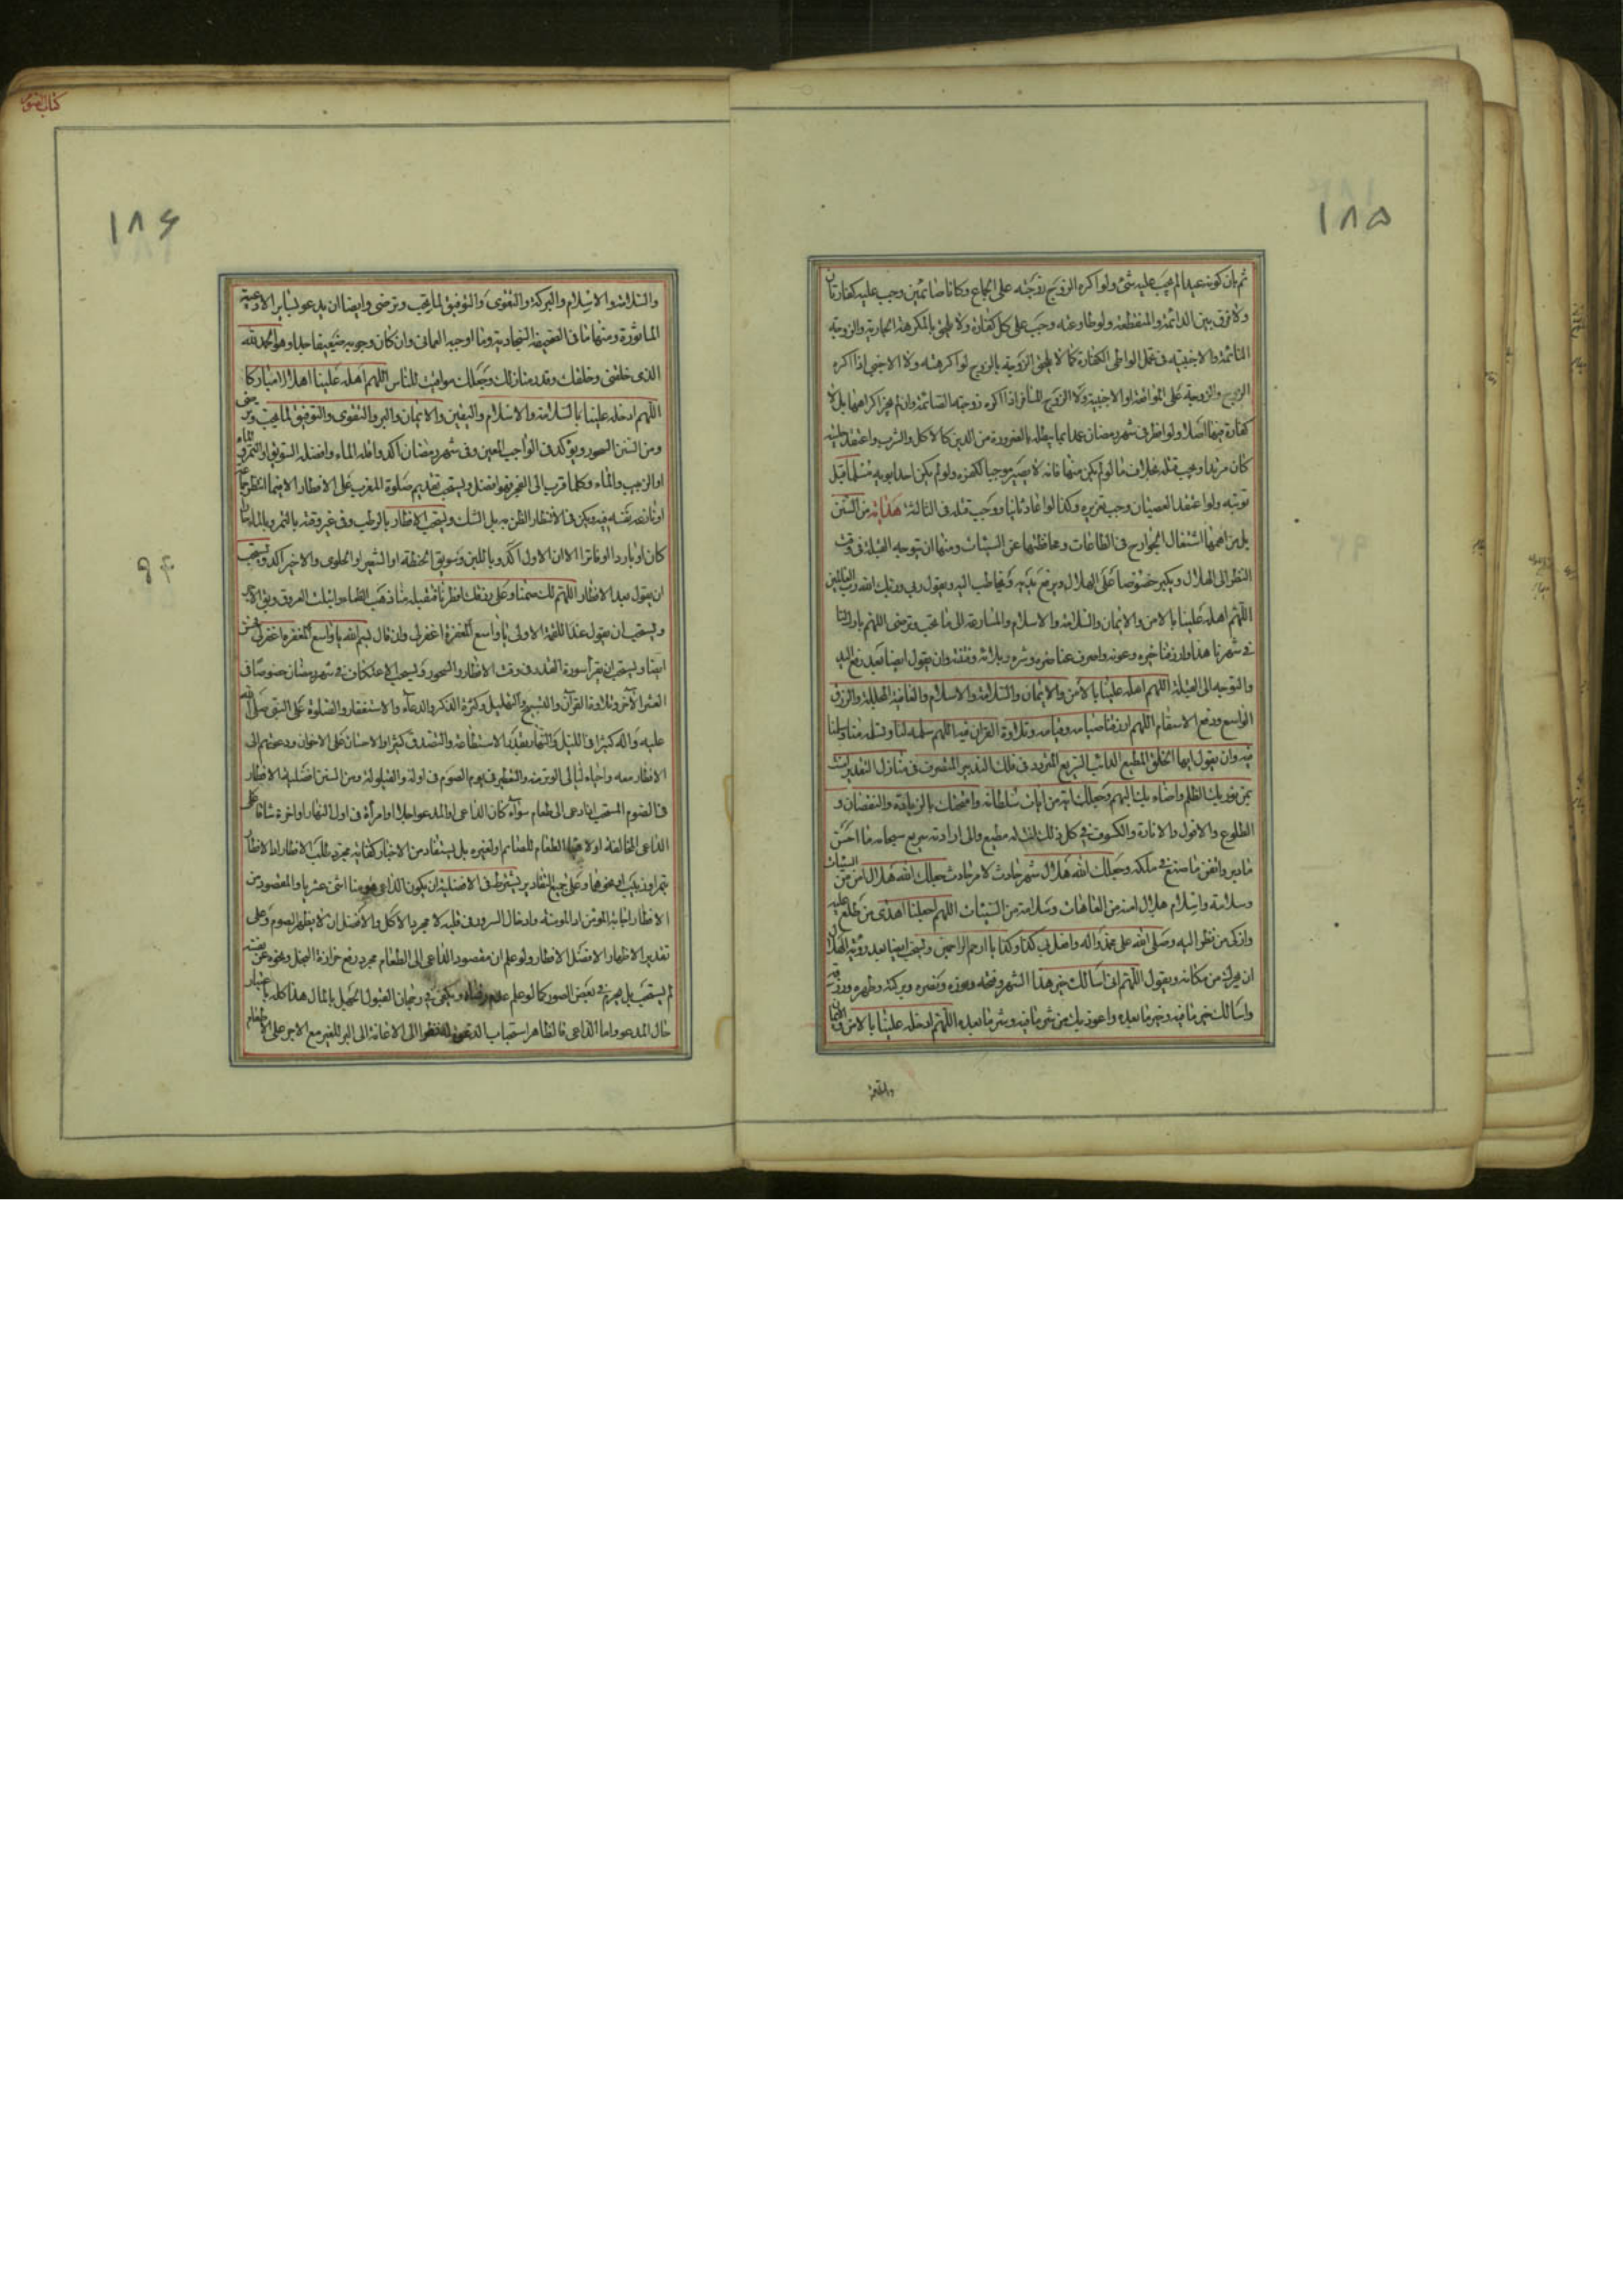 ١٨۵
ثم بان كونه عيدا لم يجب عليه شئ ولو اكره الزوج زوجته على الجماع وكانا صائمين وجب عليه كفارتان
ولا فرق بين الدائمة والمنقطعة ولو طاوعته وجب على كل كفارة ولا يلحق بالمكرهة الجارية والزوجة
النائمة والاجنبية في تحمل الواطى الكفارة كما لا يلحق الزوجة بالزوج لو اكرهته ولا الاجنبى اذا اكره
الزوج والزوجة على المواقعة او الاجنبية ولا الزوج المسافر اذا اكره زوجته الصائمة وان لم يجز اكراهها بل لا
كفارة فيها اصلا ولو افطر في شهر رمضان عمدا بما يبطله بالضرورة من الدين كالاكل والشرب واعتقد حليته
كان مرتدا ويجب قتله بخلاف ما لو لم يكن منها فانه لا يصير موجبا لكفره ولو لم يكن احد ابويه مسلما قبل
توبته ولو اعتقد العصيان وجب تعزيره وكذا لو اعاد ثانيا ووجب قتله في الثالثة هداية من السنن
بل من اهمها اشتغال الجوارح في الطاعات ومحافظتها عن السيئات ومنها ان يتوجه القبلة في وقت
النظر الى الهلال ويكبر خصوصا على الهلال ويرفع يديه ويخاطب اليه ويقول ربى وربك الله رب العالمين
اللهم اهله علينا بالامن والايمان والسلامة والاسلام والمسارعة الى ما تحب وترضى اللهم بارك لنا
في شهرنا هذا وارزقنا خيره وعونه واصرف عنا ضره وشره وبلائه وفتنته وان يقول ايضا بعد رفع اليد
والتوجيه الى القبلة اللهم اهله علينا بالامن والايمان والسلامة والاسلام والعافية المجللة والرزق
الواسع ودفع الاسقام اللهم ارزقنا صيامه وقيامه وتلاوة القران فيه اللهم سلمه لنا وتسلمه منا وسلمنا
فيه وان يقول ايها الخلق المطيع الدائب السريع المتردد في فلك التدبير المتصرف في منازل التقدير امنت
بمن نور بك الظلم واضاء بك البهم وجعلك اية من ايات سلطانه وامتحنك بالزيادة والنقصان و
الطلوع والافول والانارة والكسوف في كل ذلك انت له مطيع والى ارادته سريع سبحانه ما احسن
ما دبر واتقن ما صنع في ملكه وجعلك الله هلال شهر حادث لامر حادث جعلك الله هلال امن من السيئات
وسلامة واسلام هلال امنة من العاهات وسلامة من السيئات اللهم اجعلنا اهدى من طلع عليه
وازكى من نظر اليه وصلى الله على محمد واله وافعل بى كذا وكذا يا ارحم الراحمين ويستحب ايضا بعد رؤية الهلال
ان يحرك من مكانه ويقول اللهم انى اسالك خير هذا الشهر وفتحه ونوره ونصره وبركته وطهره ورزقه
واسالك خير ما فيه وخير ما بعده واعوذ بك من شر ما فيه وشر ما بعده اللهم ادخله علينا بالامن والايمان
كتاب الصوم
١٨۶
والسلامة والاسلام والبركة والتقوى والتوفيق لما يحب وترضى وايضا ان يدعو بساير الادعية
الماثورة ومنها ما في الصحيفة السجادية وما اوجبه العمانى وان كان وجوبه ضعيفا جدا وهو الحمد لله
الذى خلقنى وخلقك وقدر منازلك وجعلك مواقيت للناس اللهم اهله علينا اهلالا مباركا
اللهم ادخله علينا بالسلامة والاسلام واليقين والايمان والبر والتقوى والتوفيق لما يحب وترضى
ومن السنن السحور ويؤكد في الواجب المعين وفي شهر رمضان اكد واقله الماء وافضله السويق والتمر والماء
او الزبيب والماء وكلما قرب الى الفجر فهو افضل ويستحب تقديم صلوة المغرب على الافطار الا فيما انتظر جماعة
او نازعته نفسه فيه ويكفى في الانتظار الظن به بل الشك ويستحب الافطار بالرطب وفي غير وقته بالتمر وبالماء حارا
كان او باردا او فاترا الا ان الاول اكد وباللبن وسويق الحنطة او الشعير او الحلوى والاخير اكد ويستحب
ان يقول بعد الافطار اللهم لك صمنا وعلى رزقك افطرنا فتقبله منا ذهب الظماء وابتلت العروق وبقى الاجر
ويستحب ان يقول عند اللقمة الاولى يا واسع المغفرة اغفر لى وان قال بسم الله يا واسع المغفرة اغفر لى فحسن
ايضا ويستحب ان يقرأ سورة القدر في وقت الافطار والسحور ويستحب الاعتكاف في شهر رمضان خصوصا في
العشر الآخر وتلاوة القرآن والتسبيح والتهليل وكثرة الذكر والدعاء والاستغفار والصلوة على النبى صلى الله
عليه واله كثيرا في الليل والنهار بقدر الاستطاعة والتصدق كثيرا والاحسان على الاخوان ودعوتهم الى
الافطار معه واحياء ليالى الوتر منه والتعطير في يوم الصوم في اوله والقيلولة ومن السنن افضلية الافطار
في الصوم المستحب اذا دعى الى طعام سواء كان الداعى او المدعو رجلا او امرأة في اول النهار او اخره شاقا على
الداعى المخالفة او لا هيأ الطعام للصائم او لغيره بل يستفاد من الاخبار كفاية مجرد طلب الافطار او الافطار
بتمر او زبيب او نحوهما وعلى جميع التقادير يشترط في الافضلية ان يكون الداعى مؤمنا اثنى عشريا والمقصود من
الافطار اجابة المؤمن او المومنة وادخال السرور في قلبه لا مجرد الاكل والافضل ان لا يظهر الصوم وعلى
تقدير الاظهار الافضل الافطار ولو علم ان مقصود الداعى الى الطعام مجرد رفع حزازة البخل ونحوه عن نفسه
لم يستحب بل يحرم في بعض الصور كما لو علم عدم رضاه ويكفى في رجحان القبول الجهل بالحال هذا كله باعتبار
حال المدعو واما الداعى فالظاهر استحباب الدعوة الى الاعانة الى البر للغير مع الاجر على الاطعام